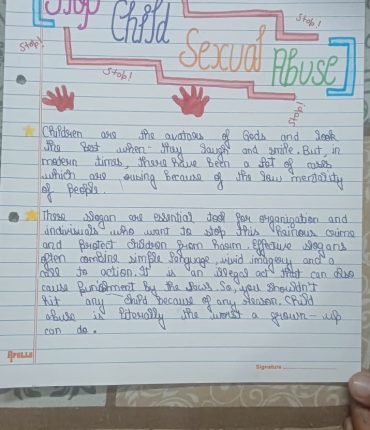 Stop Child
Stop!
Stop!
Sexual
Stop!
Abuse
Stop!
Children are the avatars of Gods and look
the best when they laugh and smile. But, in
modern times, there have been a lot of cases
which are because of the low mentality
of people.
These slogan are essential tool for organization and
individuals who want to stop this hainous crime
and protect children from harm. Effective slogans
often combine simple language, vivid imagery and a
call to action. It is an illegal act that can also
cause punishment by the laws. So, you shouldn't
hit any child because of any reason. Child
abuse is literally the worst a grown-up
can do.
APOLLO
Signature